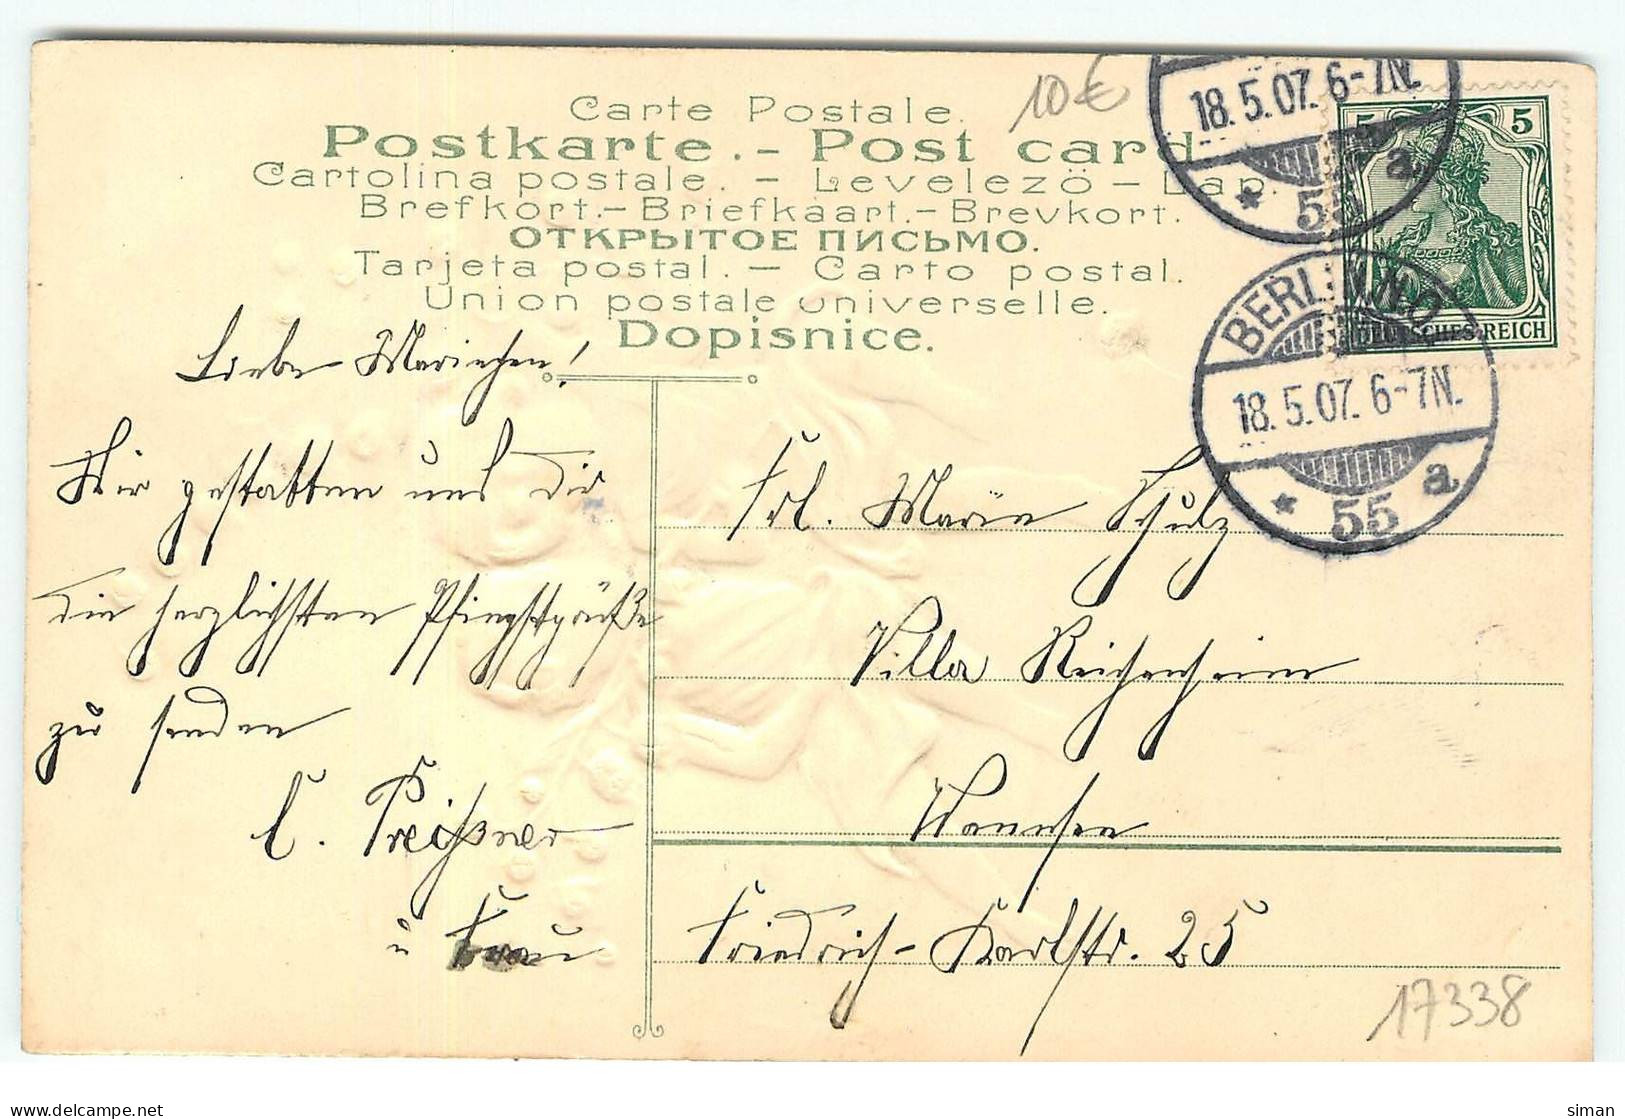 Carte Postale.
Postkarte.- Post card
Cartolina postale. - Levelező - Lap.
Brefkort.- Briefkaart.- Brevkort.
ОТКРЫТОЕ ПИСЬМО.
Tarjeta postal. - Carto postal.
Union postale universelle.
Dopisnice.
10€
18.5.07. 6-7N.
* 55 a
5 5
DEUTSCHES REICH
BERLIN.N.O.
18.5.07. 6-7N.
* 55 a
Liebe Mariechen!
Wir gestatten uns dir
die herzlichsten Pfingstgrüße
zu senden
C. Preißner
u Frau
Frl. Marie Schulz
Villa Reichenheim
Wannsee
Friedrich-Karlstr. 25
17338
delcampe.net
siman